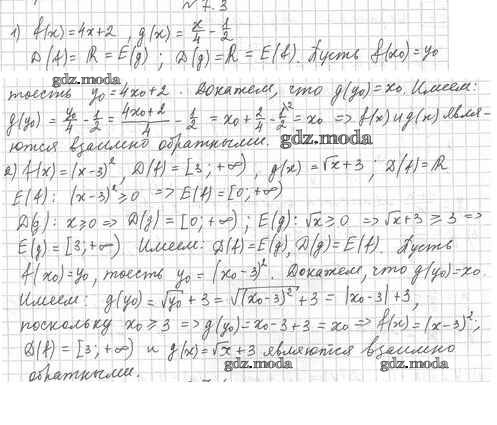 № 7.3
1) f(x) = 4x + 2 , g(x) = x/4 - 1/2
D(f) = ℝ = E(g) ; D(g) = ℝ = E(f). Пусть f(x₀) = y₀
gdz.moda
тоесть y₀ = 4x₀ + 2 . Докажем, что g(y₀) = x₀. Имеем:
g(y₀) = y₀/4 - 1/2 = (4x₀+2)/4 - 1/2 = x₀ + 2/4 - 1/2 = x₀ => f(x) и g(x) явля-
ются взаимно обратными. gdz.moda
2) f(x) = (x-3)², D(f) = [3; +∞) , g(x) = √x + 3 ; D(f) = ℝ
E(f): (x-3)² ≥ 0 => E(f) = [0; +∞)
D(g): x ≥ 0 => D(g) = [0; +∞) ; E(g): √x ≥ 0 => √x + 3 ≥ 3 =>
E(g) = [3; +∞) Имеем: D(f) = E(g), D(g) = E(f). Пусть
f(x₀) = y₀, тоесть y₀ = (x₀-3)². Докажем, что g(y₀) = x₀.
Имеем: g(y₀) = √y₀ + 3 = √((x₀-3)²) + 3 = |x₀-3| + 3,
поскольку x₀ ≥ 3 => g(y₀) = x₀ - 3 + 3 = x₀ => f(x) = (x-3)²;
D(f) = [3; +∞) и g(x) = √x + 3 являются взаимно
gdz.moda gdz.moda
обратными.